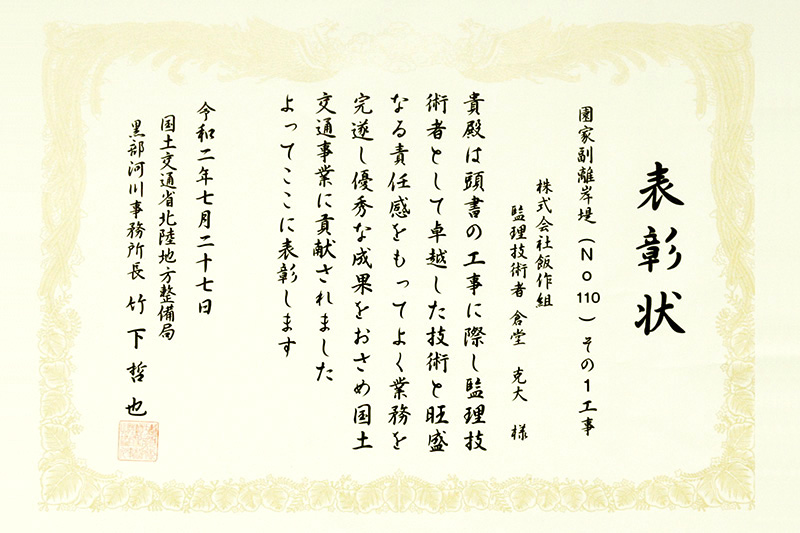 表彰状
園家副離岸堤(No110)その1工事
株式会社飯作組
監理技術者 倉堂 克大 様
貴殿は頭書の工事に際し監理技
術者として卓越した技術と旺盛
なる責任感をもってよく業務を
完遂し優秀な成果をおさめ国土
交通事業に貢献されました
よってここに表彰します
令和二年七月二十七日
国土交通省北陸地方整備局
黒部河川事務所長 竹下哲也